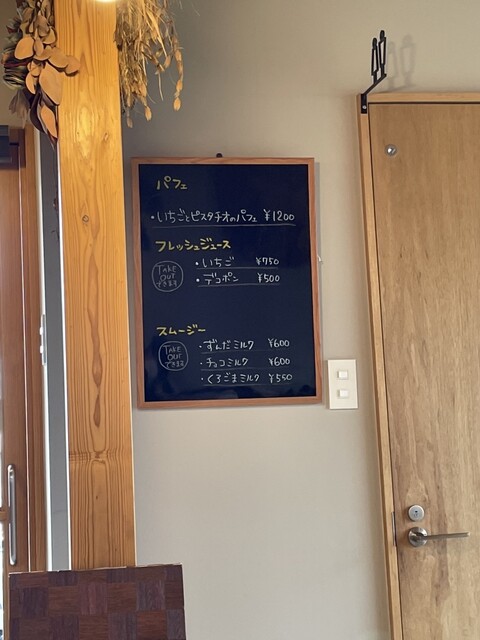 パフェ
・いちごとピスタチオのパフェ ¥1200
フレッシュジュース
TAKE OUT できます
・いちご ¥750
・デコポン ¥500
スムージー
TAKE OUT できます
・ずんだミルク ¥600
・チョコミルク ¥600
・くろごまミルク ¥550